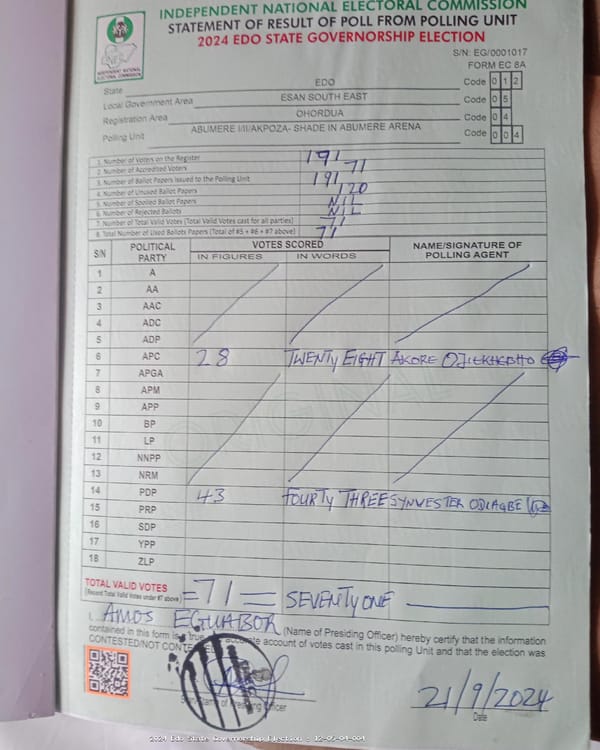 INDEPENDENT NATIONAL ELECTORAL COMMISSION
STATEMENT OF RESULT OF POLL FROM POLLING UNIT
2024 EDO STATE GOVERNORSHIP ELECTION
S/N: EG/0001017
FORM EC 8A
State EDO Code 0 1 2
Local Government Area ESAN SOUTH EAST Code 0 5
Registration Area OHORDUA Code 0 4
Polling Unit ABUMERE I/II/AKPOZA- SHADE IN ABUMERE ARENA Code 0 0 4
1. Number of Voters on the Register 191
2. Number of Accredited Voters 71
3. Number of Ballot Papers Issued to the Polling Unit 191
4. Number of Unused Ballot Papers 120
5. Number of Spoiled Ballot Papers NIL
6. Number of Rejected Ballots NIL
7. Number of Total Valid Votes (Total Valid Votes cast for all parties) 71
8. Total Number of Used Ballots Papers (Total of #5 + #6 + #7 above) 71
S/N POLITICAL PARTY VOTES SCORED NAME/SIGNATURE OF POLLING AGENT
IN FIGURES IN WORDS
1 A
2 AA
3 AAC
4 ADC
5 ADP
6 APC 28 TWENTY EIGHT AKORE
7 APGA
8 APM
9 APP
10 BP
11 LP
12 NNPP
13 NRM
14 PDP 43 FOURTY THREE SYNVESTER ODIAGBE
15 PRP
16 SDP
17 YPP
18 ZLP
ORIGINAL
TOTAL VALID VOTES =71= SEVENTY ONE
(Record Total Valid Votes under #7 above)
I, AMOS EGUABOR (Name of Presiding Officer) hereby certify that the information
contained in this form is a true and accurate account of votes cast in this polling Unit and that the election was
CONTESTED/NOT
of Presiding Officer
21/9/2024
Date
2024 Edo State Governorship Election - 12-05-04-004